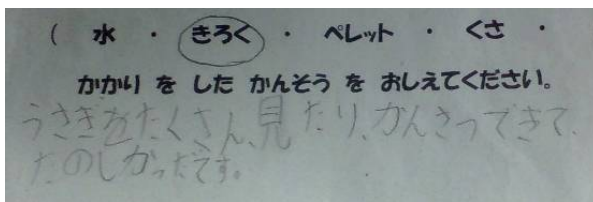 ( 水 ・ きろく ・ ペレット ・ くさ ・
かかり を した かんそう を おしえてください。
うさぎをたくさん、見たり、かんさつできて、
たのしかったです。